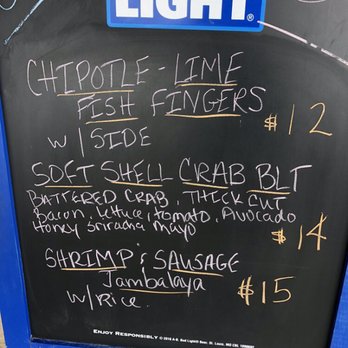 LIGHT®
CHIPOTLE - LIME
FISH FINGERS
w/SIDE $12
SOFT SHELL CRAB BLT
BATTERED CRAB, THICK CUT
Bacon, lettuce, tomato, Avocado
Honey Sriracha Mayo
$14
SHRIMP & SAUSAGE
Jambalaya
w/Rice $15
ENJOY RESPONSIBLY © 2016 A-B, Bud Light® Beer, St. Louis, MO